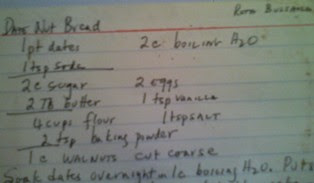 Date Nut Bread
1pt dates 2c boiling H2O
1tsp soda
2c sugar 2 eggs
2 TB butter 1 tsp vanilla
4 cups flour 1tsp salt
2 tsp baking powder
1 c WALNUTS cut coarse
Soak dates overnight in 1c boiling H2O. Put